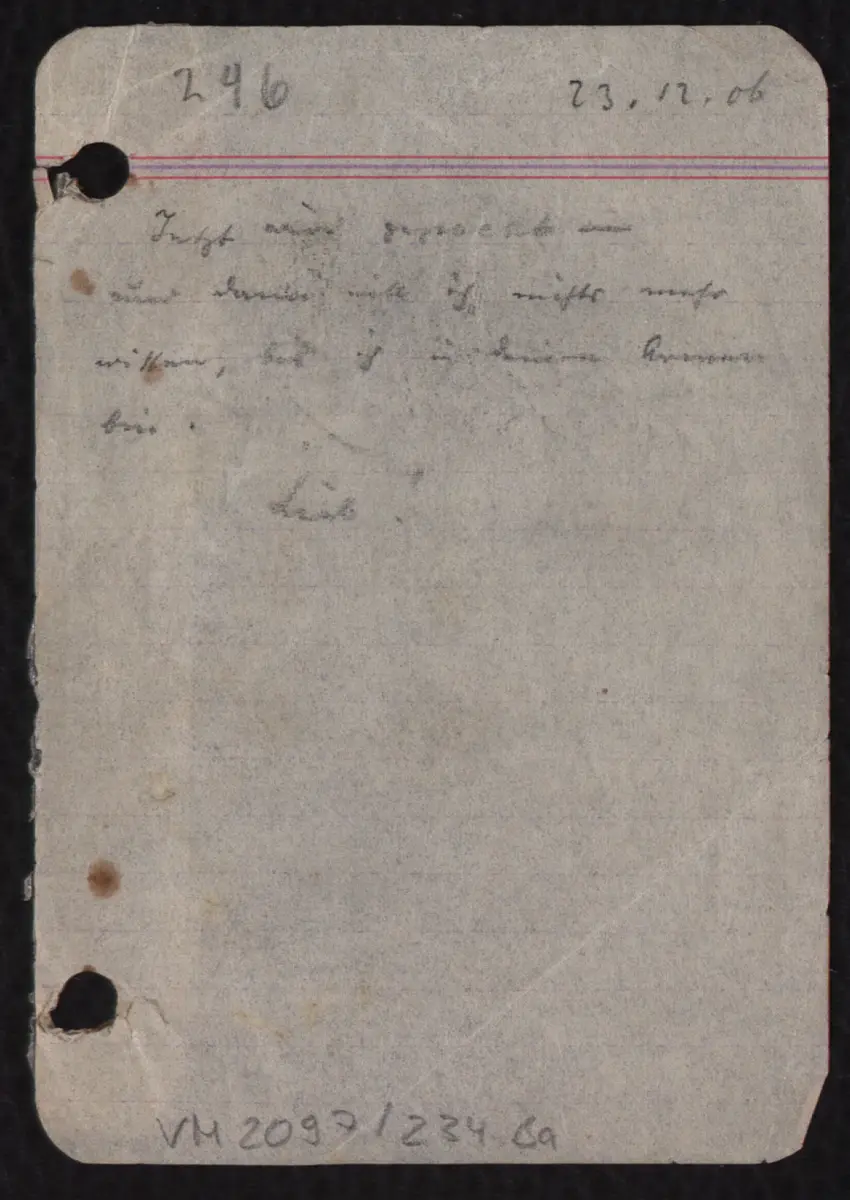 246 23.12.06
Jetzt wird gepackt —
und dann will ich nichts mehr
wissen, bis ich in deinen Armen
bin.
VM 2097/234. Ba